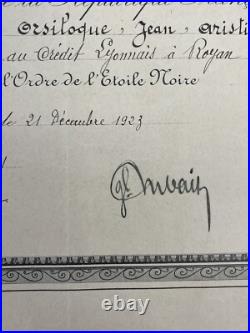 Orsiloque, Jean, Aristi
au Crédit Lyonnais à Royan
l'Ordre de l'Etoile Noire
le 21 Décembre 1923